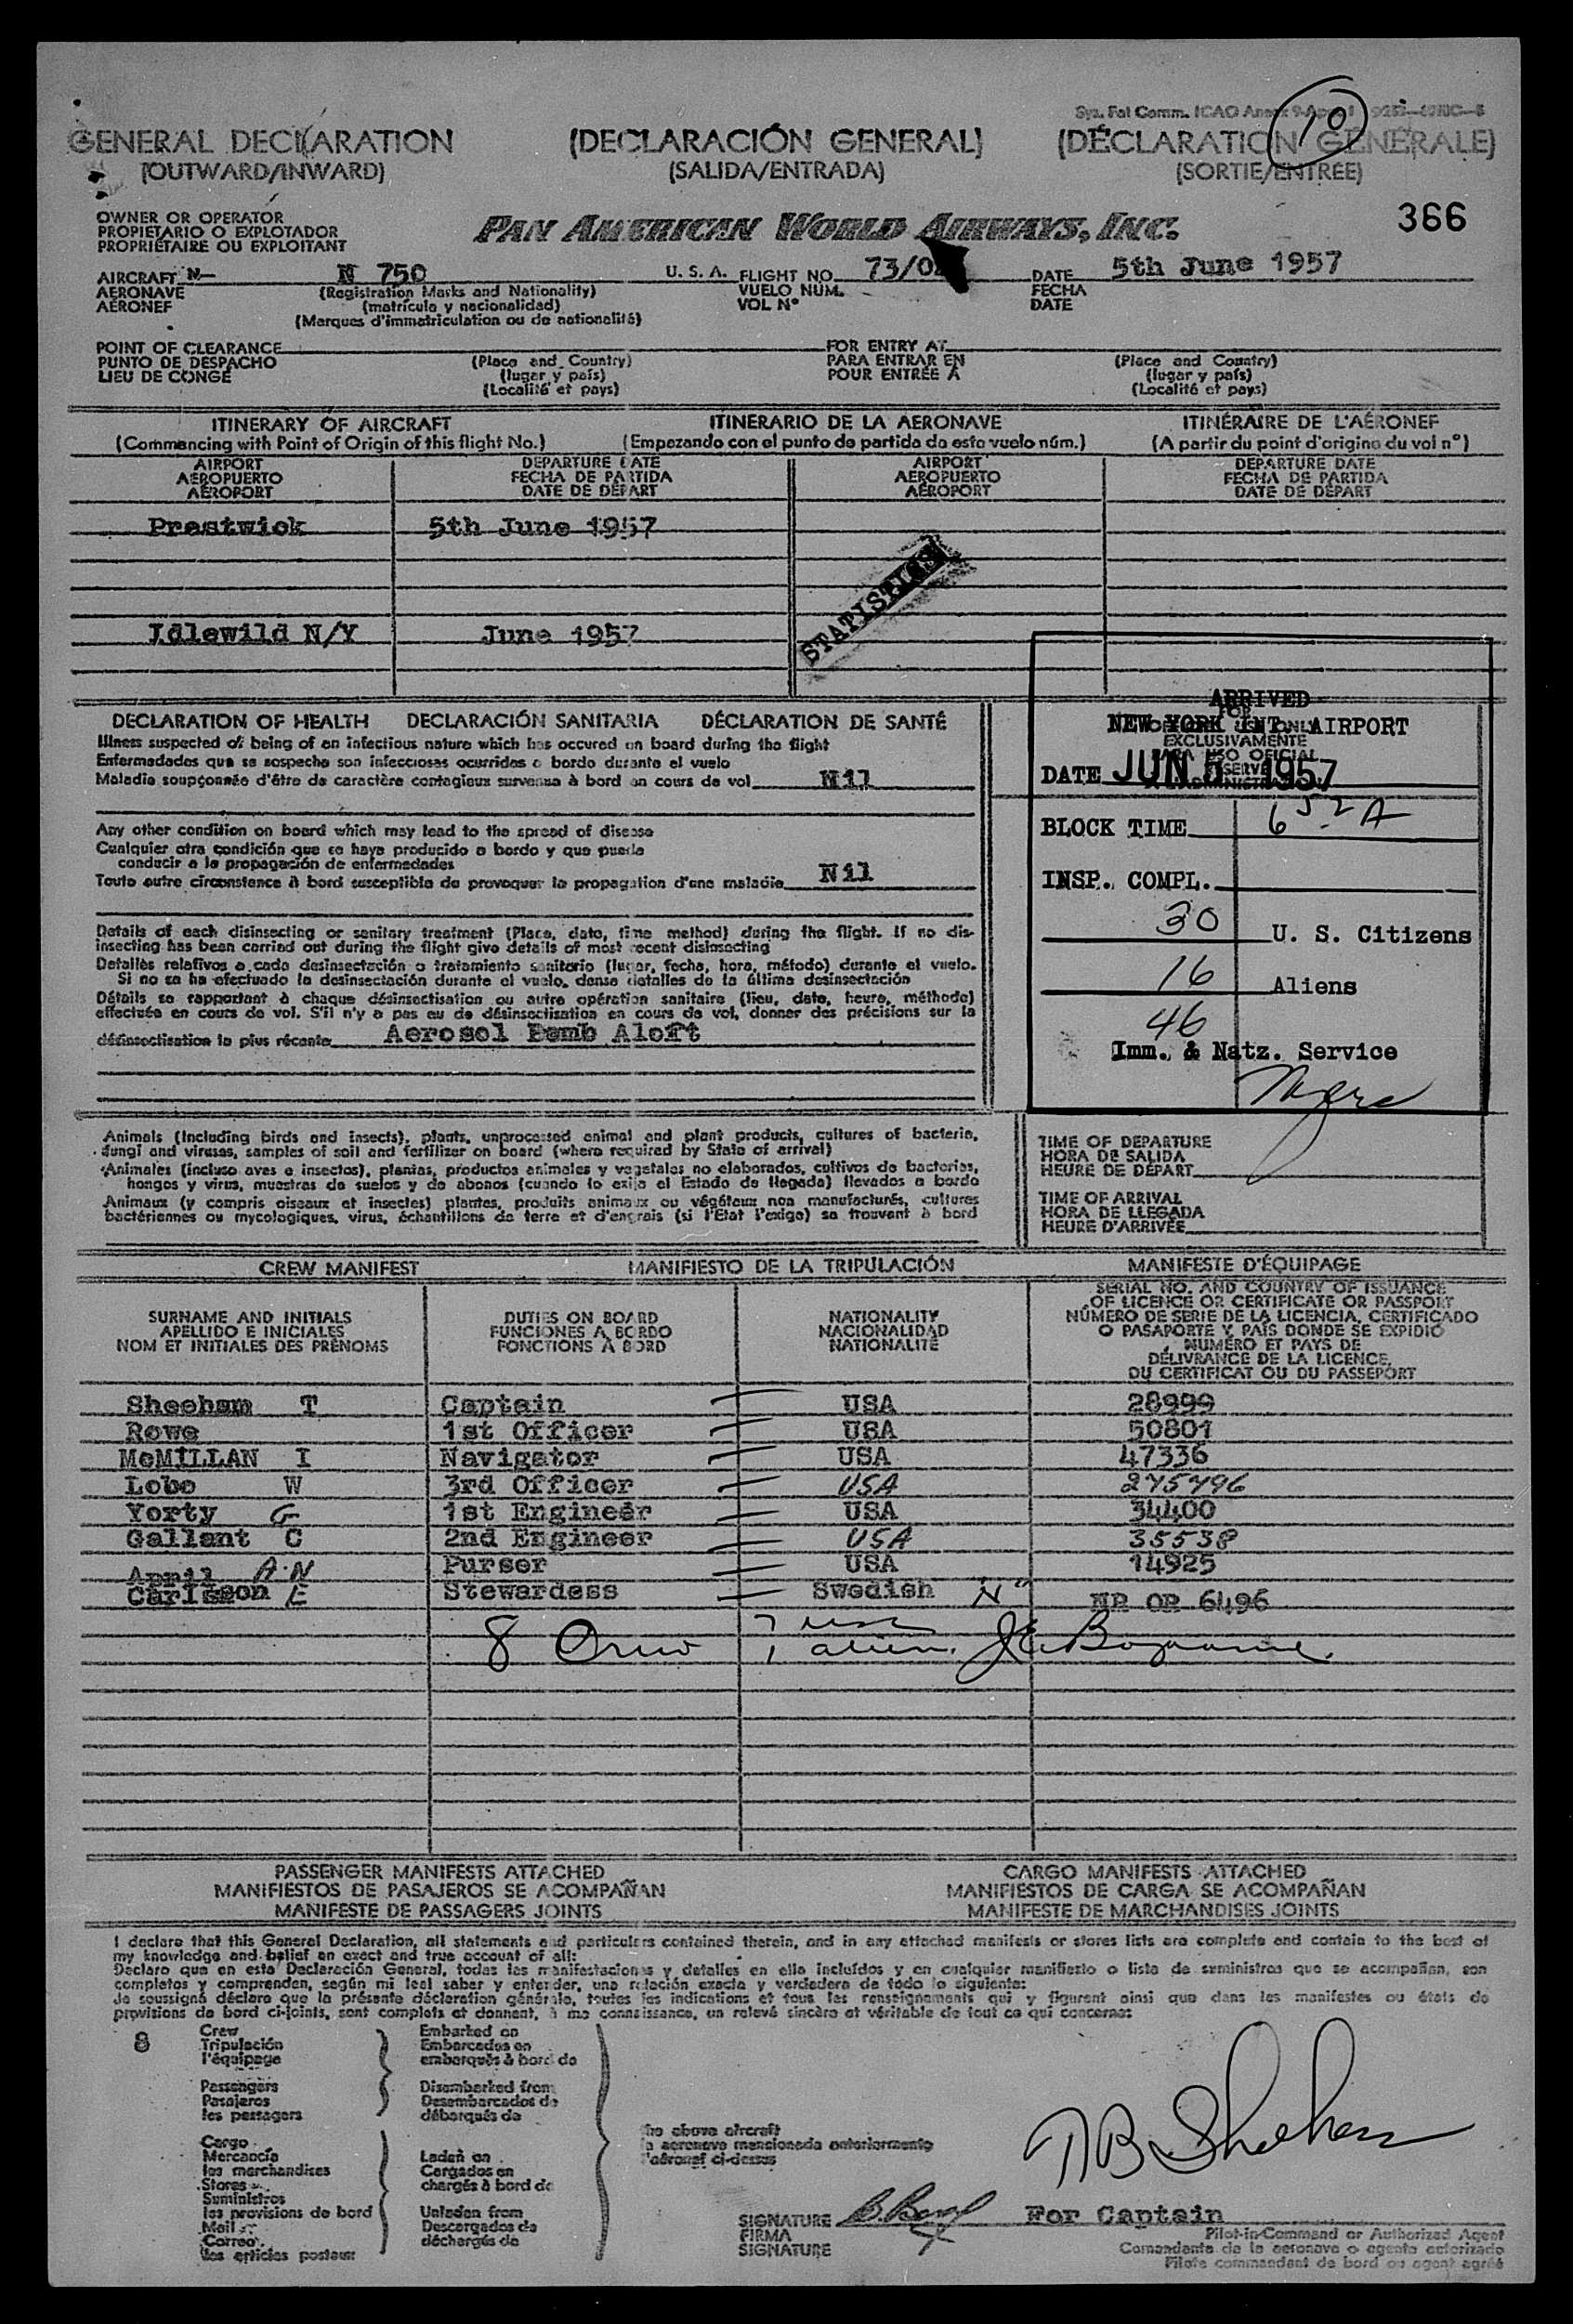 Sys. Fat Comm. ICAO Annex 9
10
GENERAL DECLARATION (DECLARACIÓN GENERAL) (DÉCLARATION GÉNÉRALE)
(OUTWARD/INWARD) (SALIDA/ENTRADA) (SORTIE/ENTRÉE)
OWNER OR OPERATOR
PROPIETARIO O EXPLOTADOR
PROPRIÉTAIRE OU EXPLOITANT
PAN AMERICAN WORLD AIRWAYS, INC.
366
AIRCRAFT N— N 750 U. S. A. FLIGHT NO. 73/0 DATE 5th June 1957
AERONAVE (Registration Marks and Nationality) VUELO NÚM. FECHA
AÉRONEF (matrícula y nacionalidad) VOL N° DATE
(Marques d'immatriculation ou de nationalité)
POINT OF CLEARANCE FOR ENTRY AT
PUNTO DE DESPACHO (Place and Country) PARA ENTRAR EN (Place and Country)
LIEU DE CONGÉ (lugar y país) POUR ENTRÉE À (lugar y país)
(Localité et pays) (Localité et pays)
ITINERARY OF AIRCRAFT ITINERARIO DE LA AERONAVE ITINÉRAIRE DE L'AÉRONEF
(Commencing with Point of Origin of this flight No.) (Empezando con el punto de partida de este vuelo núm.) (A partir du point d'origine du vol n°)
AIRPORT DEPARTURE DATE AIRPORT DEPARTURE DATE
AEROPUERTO FECHA DE PARTIDA AEROPUERTO FECHA DE PARTIDA
AÉROPORT DATE DE DÉPART AÉROPORT DATE DE DÉPART
Prestwick 5th June 1957
STATISTICS
Idlewild N/Y June 1957
DECLARATION OF HEALTH DECLARACIÓN SANITARIA DÉCLARATION DE SANTÉ
Illness suspected of being of an infectious nature which has occured on board during the flight
Enfermedades que se sospecha son infecciosas ocurridas a bordo durante el vuelo
Maladie soupçonnée d'être de caractère contagieux survenue à bord en cours de vol Nil
Any other condition on board which may lead to the spread of disease
Cualquier otra condición que se haya producido a bordo y que pueda
conducir a la propagación de enfermedades
Toute autre circonstance à bord susceptible de provoquer la propagation d'une maladie Nil
Details of each disinsecting or sanitary treatment (Place, date, time method) during the flight. If no dis-
insecting has been carried out during the flight give details of most recent disinsecting
Detalles relativos a cada desinsectación o tratamiento sanitario (lugar, fecha, hora, método) durante el vuelo.
Si no se ha efectuado la desinsectación durante el vuelo, dense detalles de la última desinsectación
Détails se rapportant à chaque désinsectisation ou autre opération sanitaire (lieu, date, heure, méthode)
effectuée en cours de vol. S'il n'y a pas eu de désinsectisation en cours de vol, donner des précisions sur la
désinsectisation la plus récente Aerosol Bomb Aloft
ARRIVED
NEW YORK INT. AIRPORT
FOR OFFICIAL USE ONLY
EXCLUSIVAMENTE
PARA USO OFICIAL
DATE JUN 5 1957
BLOCK TIME 6 52 A
INSP. COMPL.
30 U. S. Citizens
16 Aliens
46
Imm. & Natz. Service
Animals (Including birds and insects), plants, unprocessed animal and plant products, cultures of bacteria,
fungi and viruses, samples of soil and fertilizer on board (where required by State of arrival)
Animales (incluso aves e insectos), plantas, productos animales y vegetales no elaborados, cultivos de bacterias,
hongos y virus, muestras de suelos y de abonos (cuando lo exija el Estado de llegada) llevados a bordo
Animaux (y compris oiseaux et insectes) plantes, produits animaux ou végétaux non manufacturés, cultures
bactériennes ou mycologiques, virus, échantillons de terre et d'engrais (si l'État l'exige) se trouvant à bord
TIME OF DEPARTURE
HORA DE SALIDA
HEURE DE DÉPART
TIME OF ARRIVAL
HORA DE LLEGADA
HEURE D'ARRIVÉE
CREW MANIFEST MANIFIESTO DE LA TRIPULACIÓN MANIFESTE D'ÉQUIPAGE
SURNAME AND INITIALS DUTIES ON BOARD NATIONALITY SERIAL NO. AND COUNTRY OF ISSUANCE
APELLIDO E INICIALES FUNCIONES A BORDO NACIONALIDAD OF LICENCE OR CERTIFICATE OR PASSPORT
NOM ET INITIALES DES PRÉNOMS FONCTIONS À BORD NATIONALITÉ NÚMERO DE SERIE DE LA LICENCIA, CERTIFICADO
O PASAPORTE Y PAÍS DONDE SE EXPIDIÓ
NUMÉRO ET PAYS DE
DÉLIVRANCE DE LA LICENCE,
DU CERTIFICAT OU DU PASSEPORT
Sheeham T Captain USA 28999
Rowe 1st Officer USA 50801
McMILLAN I Navigator USA 47336
Lobo W 3rd Officer USA 275796
Yorty G 1st Engineer USA 34400
Gallant C 2nd Engineer USA 35538
April A.N Purser USA 14925
Carlsson E Stewardess Swedish NP OP 6496
8 Crew 7 usa
1 alien.
PASSENGER MANIFESTS ATTACHED CARGO MANIFESTS ATTACHED
MANIFIESTOS DE PASAJEROS SE ACOMPAÑAN MANIFIESTOS DE CARGA SE ACOMPAÑAN
MANIFESTE DE PASSAGERS JOINTS MANIFESTE DE MARCHANDISES JOINTS
I declare that this General Declaration, all statements and particulars contained therein, and in any attached manifests or stores lists are complete and contain to the best of
my knowledge and belief an exact and true account of all:
Declaro que en esta Declaración General, todas las manifestaciones y detalles en ella incluídos y en cualquier manifiesto o lista de suministros que se acompañan, son
completos y comprenden, según mi leal saber y entender, una relación exacta y verdadera de todo lo siguiente:
Je soussigné déclare que la présente déclaration générale, toutes les indications et tous les renseignements qui y figurent ainsi que dans les manifestes ou états de
provisions de bord ci-joints, sont complets et donnent, à ma connaissance, un relevé sincère et véritable de tout ce qui concerne:
8 Crew Embarked on
Tripulación Embarcados en
l'équipage embarqués à bord de
Passengers Disembarked from
Pasajeros Desembarcados de
les passagers débarqués de
the above aircraft
la aeronave mencionada anteriormente
l'aéronef ci-dessus
Cargo
Mercancía Laden on
les marchandises Cargados en
Stores chargés à bord de
Suministros
les provisions de bord Unladen from
Mail Descargados de
Correo déchargés de
les articles postaux
TB Sheehan
SIGNATURE For Captain
FIRMA Pilot-in-Command or Authorized Agent
SIGNATURE Comandante de la aeronave o agente autorizado
Pilote commandant de bord ou agent agréé